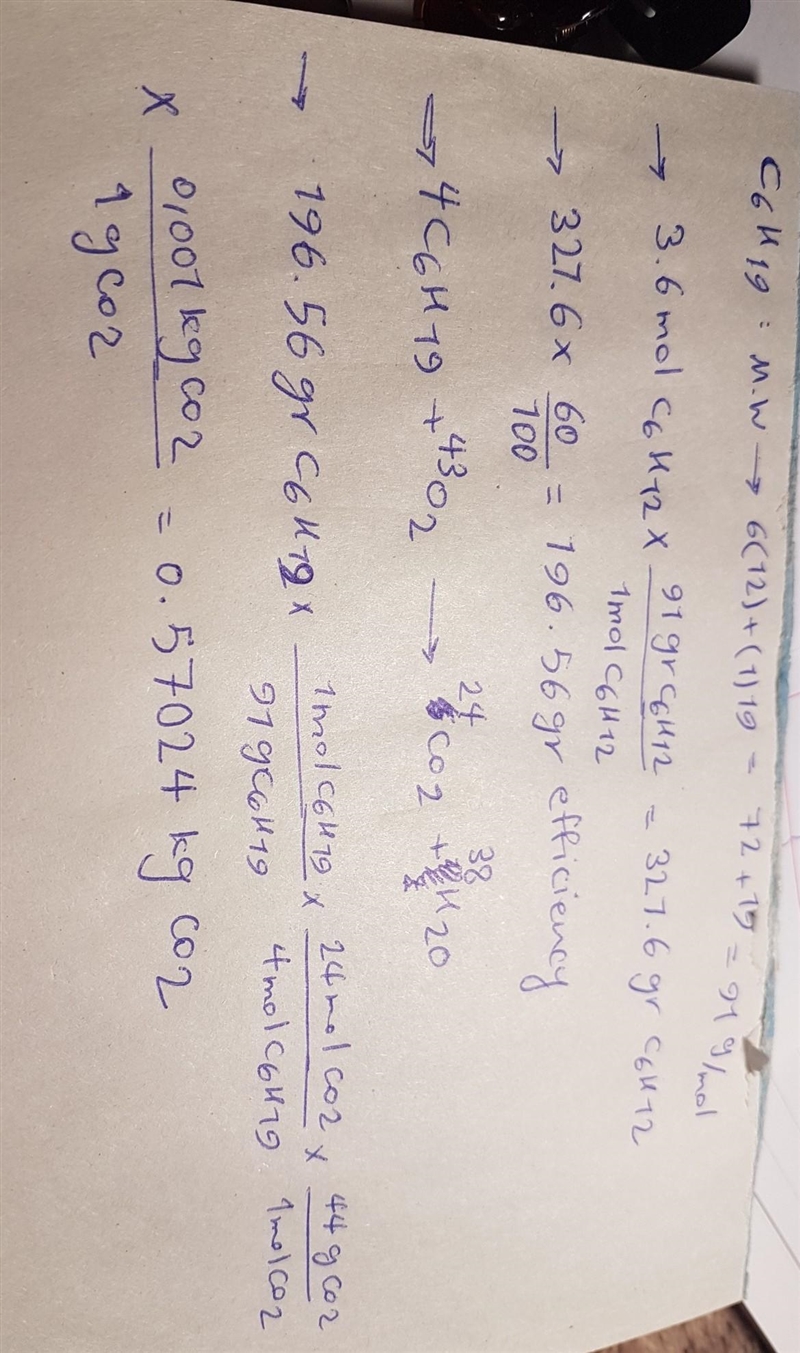 C6H19 : M.W → 6(12)+(1)19 = 72+19 = 91 g/mol
→ 3.6 mol C6H12 x 91 gr C6H12 / 1mol C6H12 = 327.6 gr C6H12
→ 327.6 x 60/100 = 196.56 gr efficiency
⇒ 4C6H19 + 43O2 → 24CO2 + 38H2O
→ 196.56 gr C6H19 x 1mol C6H19 / 91 g C6H19 x 24 mol CO2 / 4 mol C6H19 x 44 g CO2 / 1 mol CO2
x 0,001 kg CO2 / 1 g CO2 = 0.57024 kg CO2